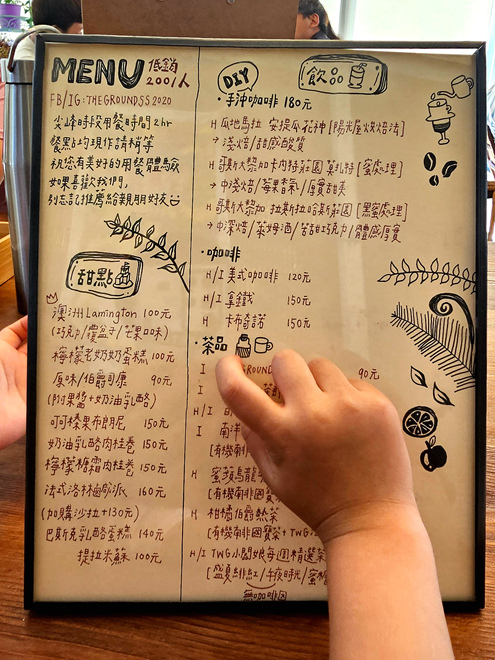 MENU 低銷 200/人
FB/IG:THEGROUNDSS2020
尖峰時段用餐時間2hr
餐點均現作請稍等
祝您有美好的用餐體驗
如果喜歡我們,
別忘記推薦給親朋好友
甜點
澳洲Lamington 100元
(巧克力/覆盆子/芒果口味)
檸檬老奶奶蛋糕 100元
原味/伯爵司康 90元
(附果醬+奶油乳酪)
可可榛果布朗尼 150元
奶油乳酪肉桂卷 150元
檸檬糖霜肉桂卷 150元
法式洛林鹹派 160元
(加購沙拉+130元)
巴斯克乳酪蛋糕 140元
提拉米蘇 100元
DIY 飲品
·手沖咖啡 180元
H 瓜地馬拉 安提瓜花神 [陽光屋炊焙法]
→淺焙/甜感酸質
H 哥斯大黎加卡內特莊園 莫札特 [蜜處理]
→中淺焙/莓果香氣/厚實甜美
H 哥斯大黎加 拉斯拉哈斯莊園 [黑蜜處理]
→中深焙/萊姆酒/苦甜巧克力/體感厚實
·咖啡
H/I 美式咖啡 120元
H/I 拿鐵 150元
H 卡布奇諾 150元
·茶品
I GROUND 90元
I
H/I
I 南洋
[有機南非國
H 蜜蘋烏龍
[有機南非國寶
H 柑橘伯爵熱茶
[有機南非國寶茶+TWG
H/I TWG小闆娘每週精選茶
[盛夏緋紅/午夜時光/蜜桃
無咖啡因